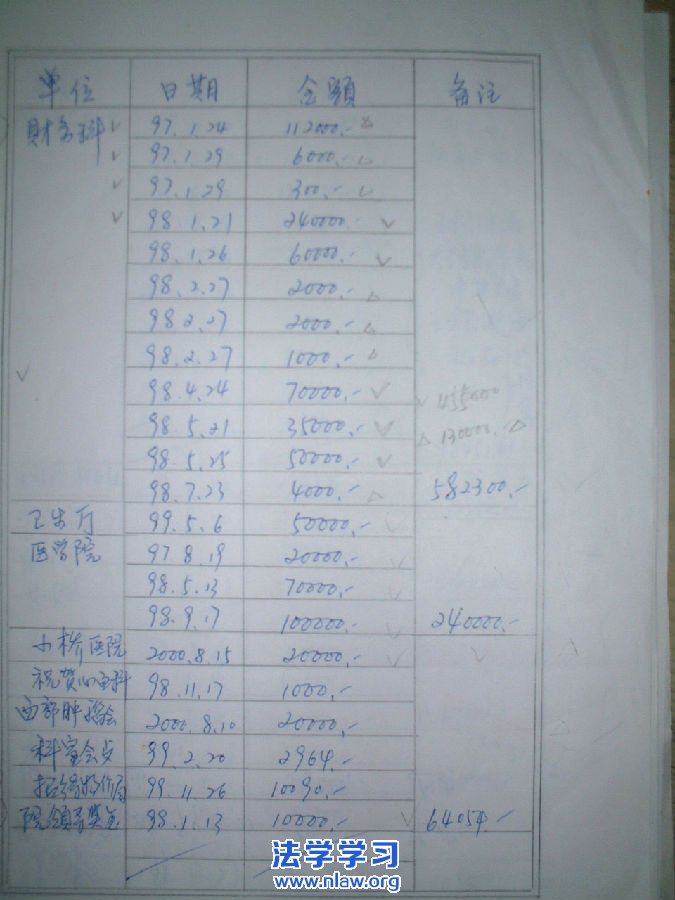 单位 日期 金额 备注
财务科 √ 97.1.24 112000.- △
√ 97.1.29 6000.- △
√ 97.1.29 300.- △
√ 98.1.21 240000.- √
98.1.26 60000.- √
98.2.27 2000.- △
98.2.27 2000.- △
98.2.27 1000.- △
√ 98.4.24 70000.- √ √ 455000
98.5.21 35000.- √ △ 130000.- △
98.5.25 50000.- √
98.7.23 4000.- △ 582300.-
卫生厅 99.5.6 50000.- √
医学院 97.8.19 20000.- √
98.5.13 70000.- √
98.9.17 100000.- √ 240000.-
小桥医院 2000.8.15 20000.- √ √
祝贺心血科 98.11.17 1000.-
西部肿瘤会 2000.8.10 20000.-
科室会 99.2.20 2964.-
招待 99.11.26 10090.-
院领导奖金 98.1.13 10000.- √ 64054.-
法学学习
www.nlaw.org